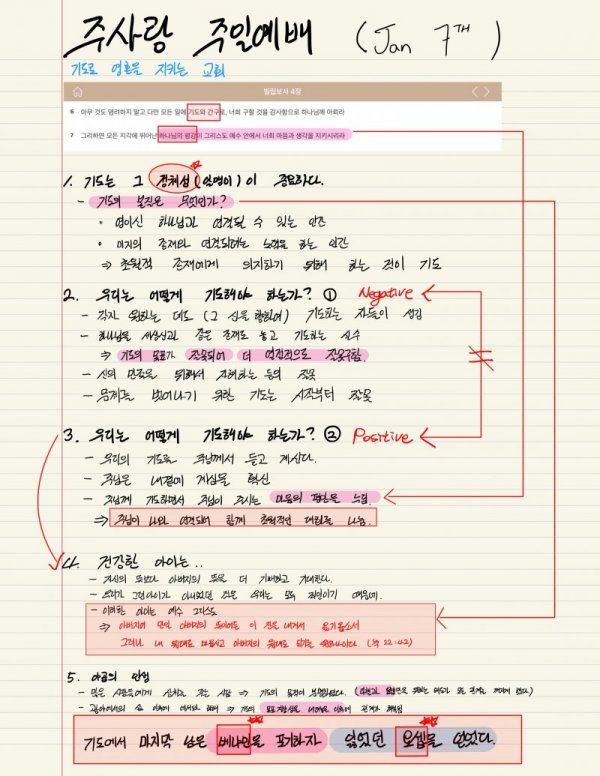 주사랑 주일예배 (Jan 7th)
기도로 영혼을 지키는 교회
빌립보서 4장
6 아무 것도 염려하지 말고 다만 모든 일에 기도와 간구로, 너희 구할 것을 감사함으로 하나님께 아뢰라
7 그리하면 모든 지각에 뛰어난 하나님의 평강이 그리스도 예수 안에서 너희 마음과 생각을 지키시리라
1. 기도는 그 정체성 ( )이 중요하다.
- 기도의 본질은 무엇인가?
• 영이신 하나님과 연결될 수 있는 인간
• 미지의 존재와 연결되려는 노력을 하는 인간
⇒ 초월적 존재에게 의지하기 위해 하는 것이 기도
2. 우리는 어떻게 기도해야 하는가? ① Negative
- 각자 원하는 대로 (그 신을 향하여) 기도하는 자들이 생김
- 하나님을 세상신과 같은 존재로 놓고 기도하는 실수
⇒ 기도의 목표가 잘못되어 더 영적으로 잘못됨.
- 신의 만족을 위해서 자해하는 등의 잘못
- 문제를 벗어나기 위한 기도는 시작부터 잘못
3. 우리는 어떻게 기도해야 하는가? ② Positive
- 우리의 기도를 주님께서 듣고 계신다.
- 주님은 내곁에 계심을 확신
- 주님께 기도하면서 주님이 주시는 마음의 평안을 느낌
⇒ 주님이 나와 연결되어 함께 초월적인 대화를 나눔.
4. 건강한 아이는..
- 자신의 뜻보다 아버지의 뜻을 더 기뻐하고 기대한다.
- 우리가 그런아이가 아니었던 것은 우리는 모두 죄인이기 때문에.
- 이러한 아이는 예수 그리스도
⇒ 아버지여 만일 아버지의 뜻이거든 이 잔을 내게서 옮기옵소서
그러나 내 원대로 마옵시고 아버지의 원대로 되기를 원하나이다. (눅 22:42)
5. 야곱의 인생
- 많은 사람들에게 상처를 주는 사람 ⇒ 기도의 목적이
⇒ 기도의
기도에서 마지막 남은 베냐민을 포기하자 잃었던 요셉을 얻었다.